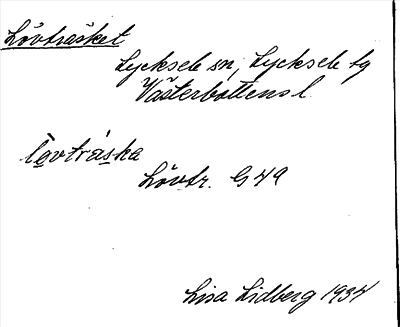 Lövträsket
Lycksele sn, Lycksele lg
Västerbottens l.
lovtráska
Lövtr. G 49
Lisa Lidberg 1934